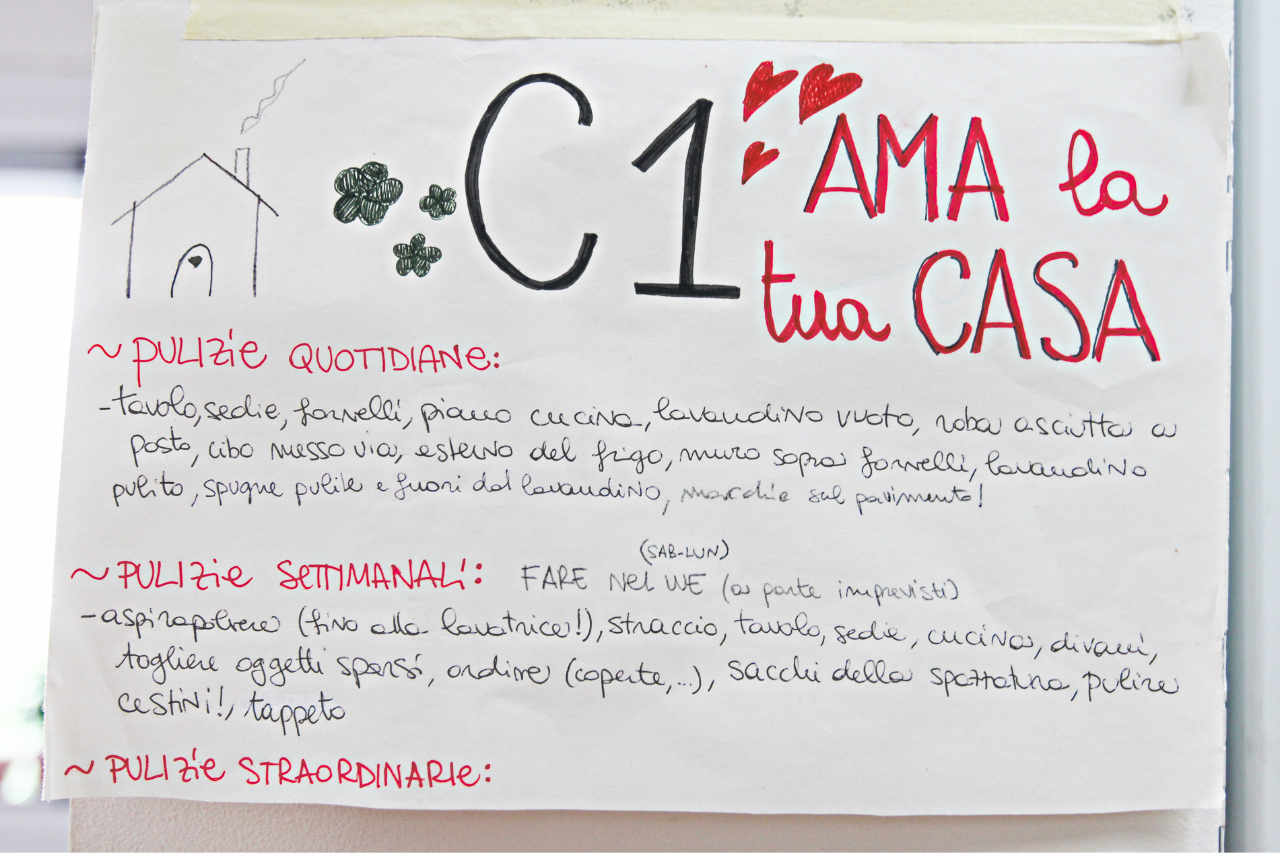 C1 AMA la
tua CASA
~ PULIZIE QUOTIDIANE:
-tavolo, sedie, fornelli, piano cucina, lavandino vuoto, roba asciutta a
posto, cibo messo via, esterno del frigo, muro sopra fornelli, lavandino
pulito, spugne pulite e fuori dal lavandino, macchie sul pavimento!
(SAB-LUN)
~ PULIZIE SETTIMANALI: FARE NEL WE (a parte imprevisti)
-aspirapolvere (fino alla lavatrice!), straccio, tavolo, sedie, cucina, divani,
togliere oggetti sparsi, ordine (coperte,...), sacchi della spazzatura, pulire
cestini!, tappeto
~ PULIZIE STRAORDINARIE: